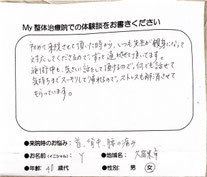 My 整体治療院での体験談をお書きください
初めて来院させて頂いた時から、いつも先生が親身になって
対応してくださるので、すごく通いやすいです。
施術中も、楽しい話をして頂けるので、何でも話せて
気持ちまでスッキリして帰れるので、ストレスも解消させて
もらっています。
●来院時のお悩み：首、背中、腰の痛み
●お名前(イニシャル)： Y ●地域名：大阪
●年齢：40 歳代 ●性別： 男 女